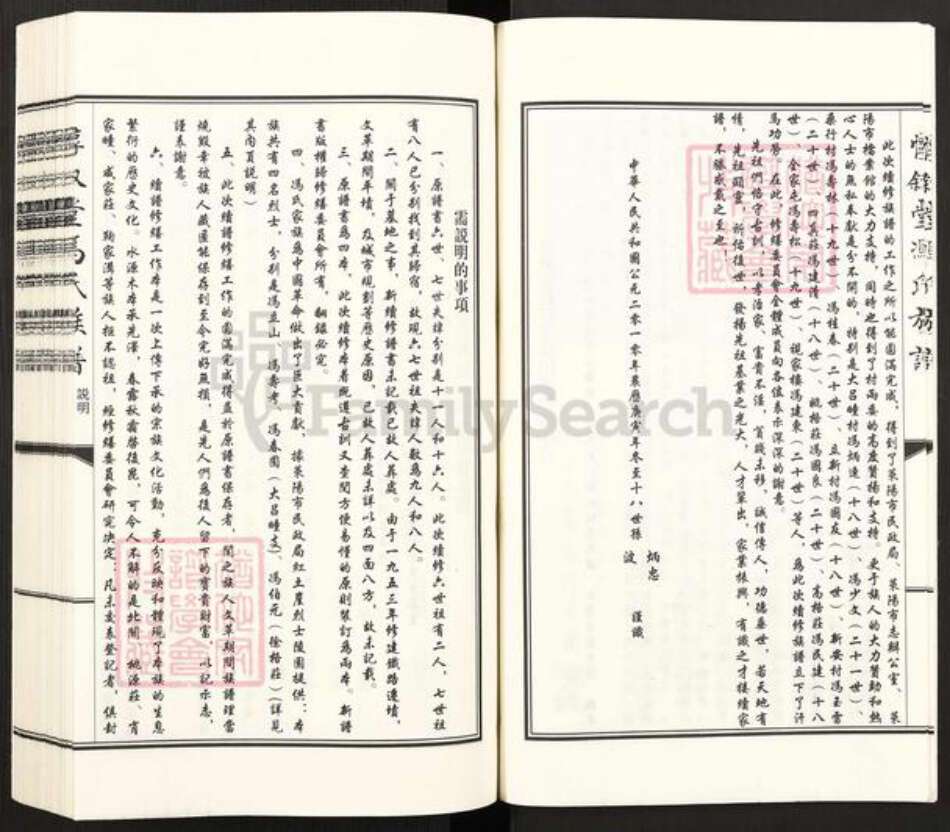 此次續修族譜的工作之所以能圓滿完成，得到了萊陽市民政局、萊陽市志辦公室、萊
陽市檔案館的大力支持，同時之得到了村兩委的高度贊揚和支持。更于族人的大力贊助和熱
心人士的無私奉獻是分不開的，特別是大呂疃村馮炳通（十八世）、馮少文（二十一世）、
桑行村馮壽林（十九世）、馮桂春（二十世）、立新村馮國友（十八世）、新安村馮玉雷
（二十世）、四真莊馮建清（十八世）、姚格莊馮國良（二十世）、高格莊馮民建（十八
世）、全家屯馮壽松（十九世）、祝家樓馮建東（二十世）等人，爲此次續修族譜立下了汗
馬功勞。在此，修繕委員會全體成員向各位表示深深的謝意。
先祖們恪守古訓，以孝治家，富貴不淫，貧賤未移，誠信傳人，功德兼世，若天地有
情，先祖顯靈，祈佑後世，發揚先祖基業之光大，人才輩出，家業振興，有識之才接續家
譜，不勝感戴之至也。
中華人民共和國公元二零一零年農歷庚寅年冬至十八世孫
炳忠
波
謹識
需説明的事項
一、原譜書六世、七世失諱分別是十一人和十六人。此次續修六世祖有二人，七世祖
有八人已分別找到其歸宿，故現六七世祖失諱人數爲九人和八人。
二、關于墓地之事，新續修譜書未記載已故人葬處。由于一九五三年修建鐵路遷墳，
文革期間平墳，及城市規劃等歷史原因，已故人葬處未詳以及四面八方，故未記載。
三、原譜書爲四本，此次續修本着既遵古訓又查閱方便易懂的原則裝訂爲兩本。新譜
書版權歸修繕委員會所有，翻録必究。
四、馮氏家族爲中國革命做出了巨大貢獻，據萊陽市民政局紅土崖烈士陵園提供：本
族共有四名烈士，分別是馮立山、馮壽考、馮春園（大呂疃支）、馮伯元（徐格莊）（詳見
其内頁説明）
五、此次續譜修繕工作的圓滿完成得益於原譜書保存者，聞之族人文革期間族譜理當
燒毁幸被族人藏匿能保存到至今完好無損，是先人們爲後人留下的寶貴財富，以記示志，
謹表謝意。
六、續譜修繕工作本是一次上傳下承的宗族文化活動，充分反映和體現了本族的生息
繁衍的歷史文化。水源木本承先澤，春露秋霜啓後昆，可令人不解的是北關、桃源莊、肖
家疃、咸家莊、鞠家溝等族人拒不認祖，經修繕委員會研究决定：凡未交表登記者，俱封
説明
FamilySearch